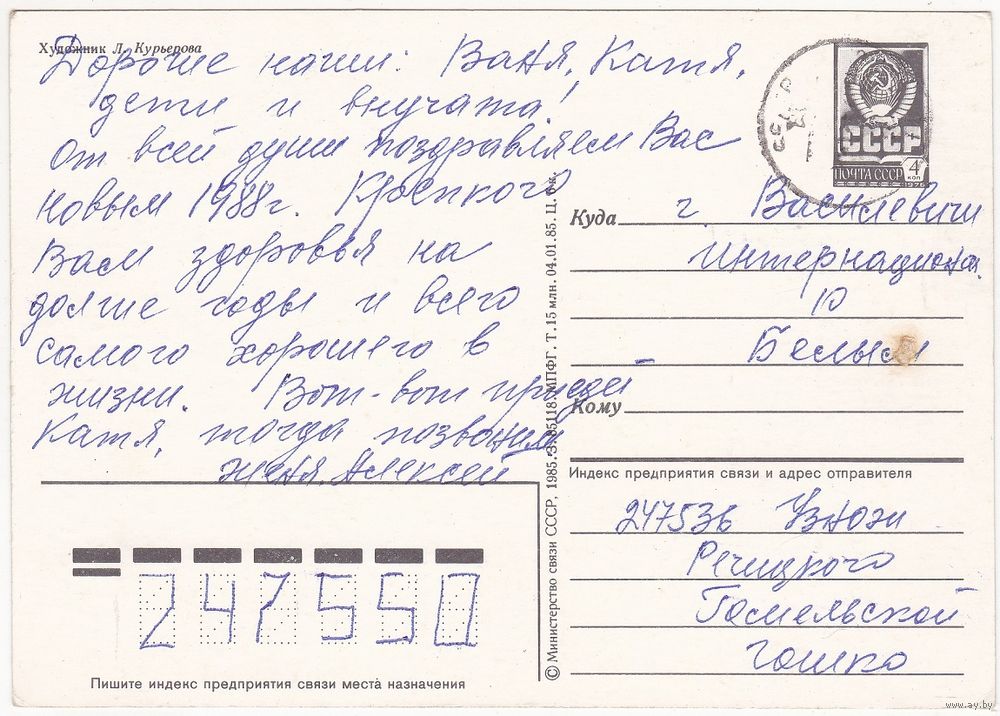 Художник Л. Курьерова
Дорогие наши: Ваня, Катя,
дети и внучата!
От всей души поздравляем Вас
новым 1988г. Крепкого
Вам здоровья на
долгие годы и всего
самого хорошего в
жизни. Вот-вот приеди-
Катя, тогда позвоним
Женя, Алексей
247550
Пишите индекс предприятия связи места назначения
© Министерство связи СССР, 1985. З. 85118. МПФГ. Т. 15 млн. 04.01.85. Ц. 5 к.
СССР
ПОЧТА СССР
4
КОП
1976
Куда г. Василевичи
Интернационал.
10
Белый
Кому
Индекс предприятия связи и адрес отправителя
247536 Узнож
Речицкого
Гомельской
Гошко
www.ay.by